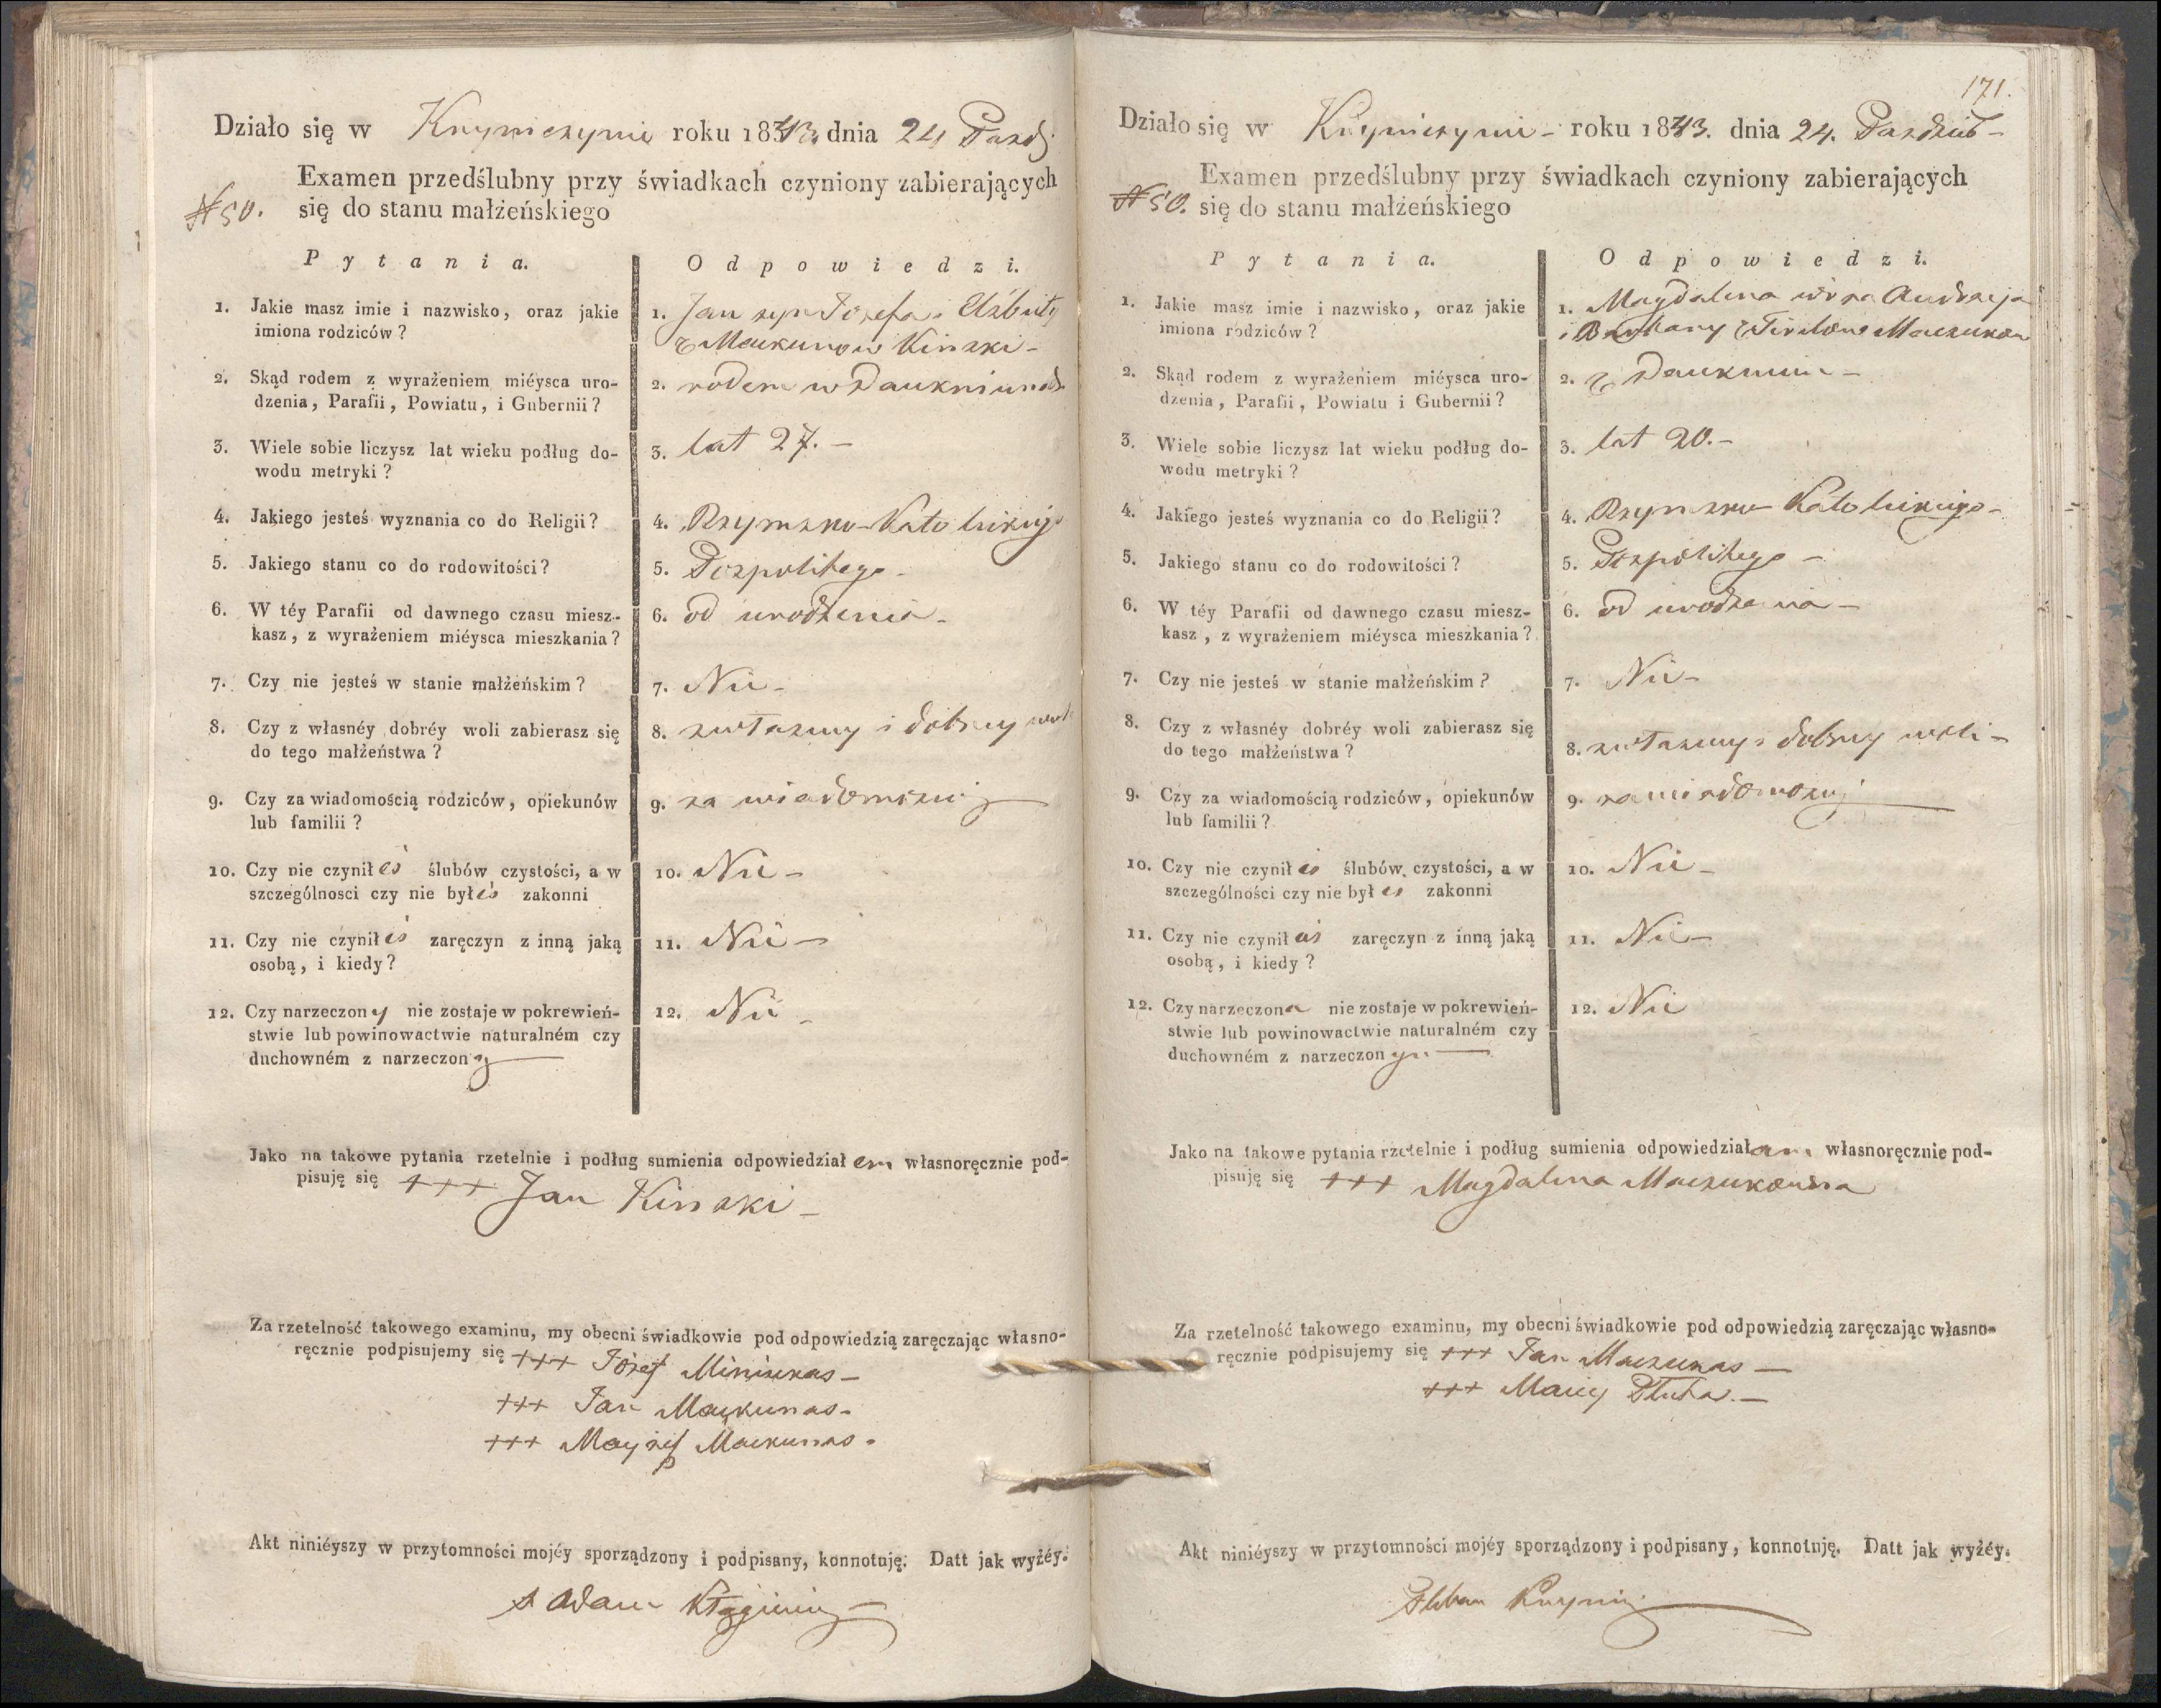 Działo się w Kryniczynie roku 1843. dnia 24 Pazdz
Examen przedślubny przy świadkach czyniony zabierających
N 50. się do stanu małżeńskiego
Pytania. Odpowiedzi.
1. Jakie masz imie i nazwisko, oraz jakie
imiona rodziców?
1. Jan syn Jozefa i Elżbiety
z Mackunow Kinski -
2. Skąd rodem z wyrażeniem miéysca uro-
dzenia, Parafii, Powiatu, i Gubernii?
2. rodem w Daukniunach
3. Wiele sobie liczysz lat wieku podług do-
wodu metryki?
3. lat 27. -
4. Jakiego jesteś wyznania co do Religii?
4. Rzymsko-Katolickiego
5. Jakiego stanu co do rodowitości?
5. Pospolitego -
6. W téy Parafii od dawnego czasu miesz-
kasz, z wyrażeniem miéysca mieszkania?
6. od urodzenia -
7. Czy nie jesteś w stanie małżeńskim?
7. Nie -
8. Czy z własnéy dobréy woli zabierasz się
do tego małżeństwa?
8. z własney i dobrey woli
9. Czy za wiadomością rodziców, opiekunów
lub familii?
9. za wiadomością
10. Czy nie czynił eś ślubów czystości, a w
szczególnosci czy nie był eś zakonni
10. Nie -
11. Czy nie czynił eś zaręczyn z inną jaką
osobą, i kiedy?
11. Nie -
12. Czy narzeczony nie zostaje w pokrewień-
stwie lub powinowactwie naturalném czy
duchowném z narzeczoną
12. Nie -
Jako na takowe pytania rzetelnie i podług sumienia odpowiedział em własnoręcznie pod-
pisuję się +++ Jan Kinski -
Za rzetelność takowego examinu, my obecni świadkowie pod odpowiedzią zaręczając własno-
ręcznie podpisujemy się +++ Józef -
+++ Jan Mackunas -
+++ Mackunas -
Akt niniéyszy w przytomności mojéy sporządzony i podpisany, konnotuję. Datt jak wyżéy.
X Adam
171.
Działo się w Kryniczynie - roku 1843. dnia 24. Pazdzier -
Examen przedślubny przy świadkach czyniony zabierających
N 50. się do stanu małżeńskiego
Pytania. Odpowiedzi.
1. Jakie masz imie i nazwisko, oraz jakie
imiona rodziców?
1. Magdalena córka Andrzeja
i Barbary z
2. Skąd rodem z wyrażeniem miéysca uro-
dzenia, Parafii, Powiatu i Gubernii?
2. z Daukniun -
3. Wiele sobie liczysz lat wieku podług do-
wodu metryki?
3. lat 20. -
4. Jakiego jesteś wyznania co do Religii?
4. Rzymsko Katolickiego -
5. Jakiego stanu co do rodowitości?
5. Pospolitego -
6. W téy Parafii od dawnego czasu miesz-
kasz, z wyrażeniem miéysca mieszkania?
6. od urodzenia -
7. Czy nie jesteś w stanie małżeńskim?
7. Nie -
8. Czy z własnéy dobréy woli zabierasz się
do tego małżeństwa?
8. z własney i dobrey woli -
9. Czy za wiadomością rodziców, opiekunów
lub familii?
9. za wiadomością
10. Czy nie czynił eś ślubów czystości, a w
szczególności czy nie był eś zakonni
10. Nie -
11. Czy nie czynił aś zaręczyn z inną jaką
osobą, i kiedy?
11. Nie -
12. Czy narzeczona nie zostaje w pokrewień-
stwie lub powinowactwie naturalném czy
duchowném z narzeczonym
12. Nie
Jako na takowe pytania rzetelnie i podług sumienia odpowiedziałam własnoręcznie pod-
pisuję się +++ Magdalena Maczukowna
Za rzetelność takowego examinu, my obecni świadkowie pod odpowiedzią zaręczając własno-
ręcznie podpisujemy się +++ Jan -
+++ Maciey -
Akt niniéyszy w przytomności mojéy sporządzony i podpisany, konnotuję. Datt jak wyżéy.
Pleban